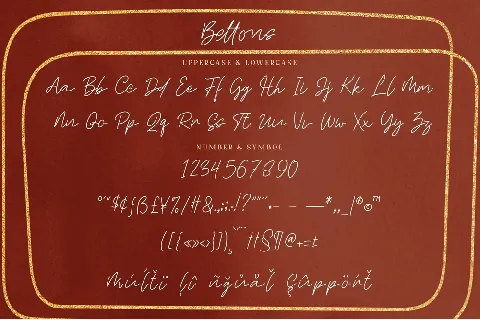 Bellons
UPPERCASE & LOWERCASE
Aa Bb Cc Dd Ee Ff Gg Hh Ii Jj Kk Ll Mm
Nn Oo Pp Qq Rr Ss Tt Uu Vv Ww Xx Yy Zz
NUMBER & SYMBOL
1234567890
°'"$¢ƒβ£¥%/#&.,:;!?'""•- – —*„_|®©™
([{«»<>}]) ††§¶@+=±
Múltï lî ñğůåľ Şûppört